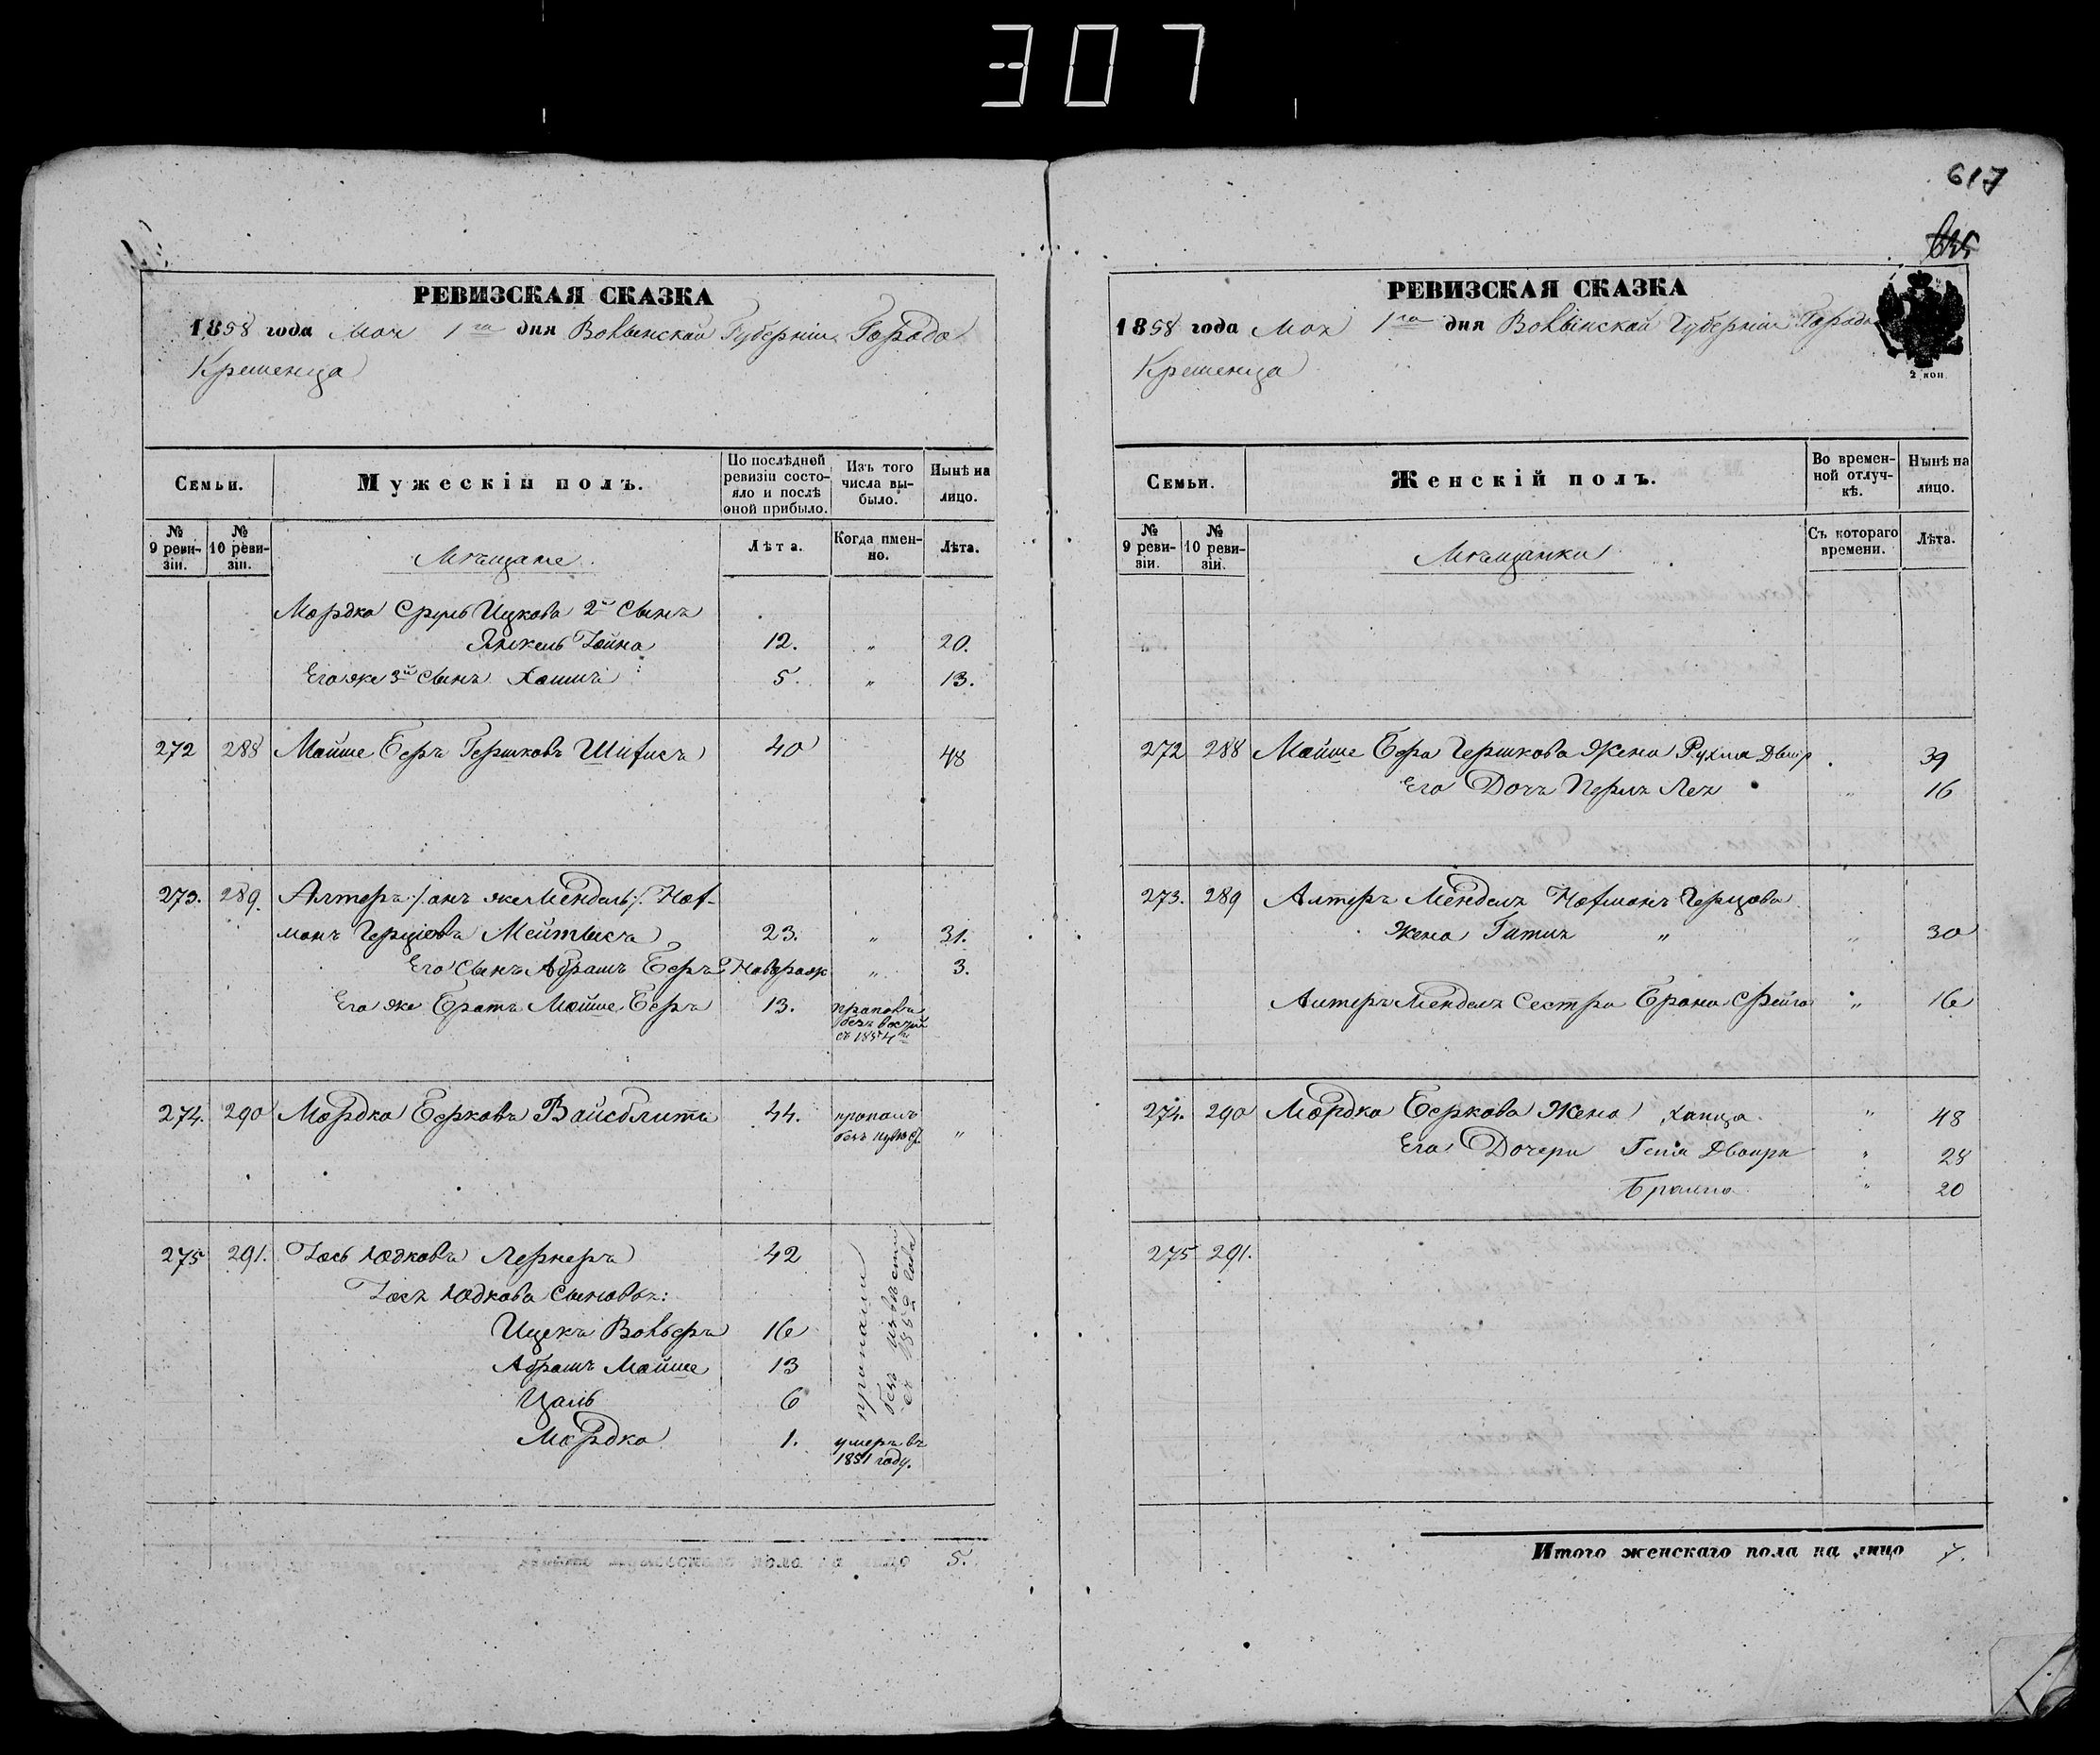 307
617
РЕВИЗСКАЯ СКАЗКА
1858 года Мая 1го дня Волынской Губернии Города
Кременца
Семьи.
Мужескій полъ.
По послѣдней ревизіи состояло и послѣ оной прибыло.
Изъ того числа выбыло.
Нынѣ на лицо.
№ 9 ревизіи.
№ 10 ревизіи.
Мѣщане.
Лѣта.
Когда именно.
Лѣта.
Мордка Сруль Ицкова 2й Сынъ
Янкель Іойна 12. " 20.
Его же 3й сынъ Хаимъ 5. " 13.
272 288 Мойше Беръ Гершковъ 40 48
273. 289. Алтеръ /: онъ же Мендель :/ Ноf-
манъ Герцовъ Мейтысъ 23. " 31.
Его сынъ Абрамъ Беръ Новорож " 3.
Его же Братъ Мойше Беръ 13. пропалъ
безъ
съ 1854
274. 290 Мордко Берковъ Вайсблитъ 44. пропалъ
безъ "
275 291. Іось Юдковъ Лернеръ 42
Іося Юдкова Сыновья:
Ицекъ Вольберъ 16
Абрамъ Мойше 13
Цаль 6
пропали
безъ извѣстно
съ 1852 года
Мордко 1. умеръ въ
1851 году.
Итого мужескаго пола на лицо 5.
РЕВИЗСКАЯ СКАЗКА
1858 года Мая 1го дня Волынской Губерніи Города
Кременца
2 коп
Семьи.
Женскій полъ.
Во временной отлучкѣ.
Нынѣ на лицо.
№ 9 ревизіи.
№ 10 ревизіи.
Мѣщанки
Съ котораго времени.
Лѣта.
272 288 Мойше Бера Гершкова Жена Рухля Двойр 39
Его Дочь Перля Лея " 16
273. 289 Алтеръ Менделя Ноfманъ Герцова
Жена Гитля " " 30
Алтеръ Менделя Сестра Брана Фрейга " 16
274. 290 Мордка Беркова Жена Ханца " 48
Его Дочери Геня Двойра " 28
Браина " 20
275 291.
Итого женскаго пола на лицо 7.